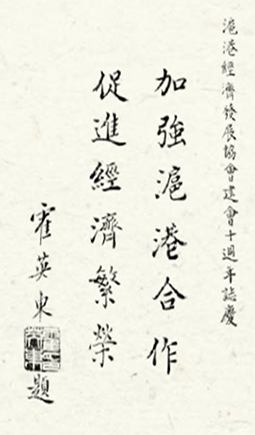 滬港經濟發展協會建會十週年誌慶
加強滬港合作
促進經濟繁榮
霍英東題